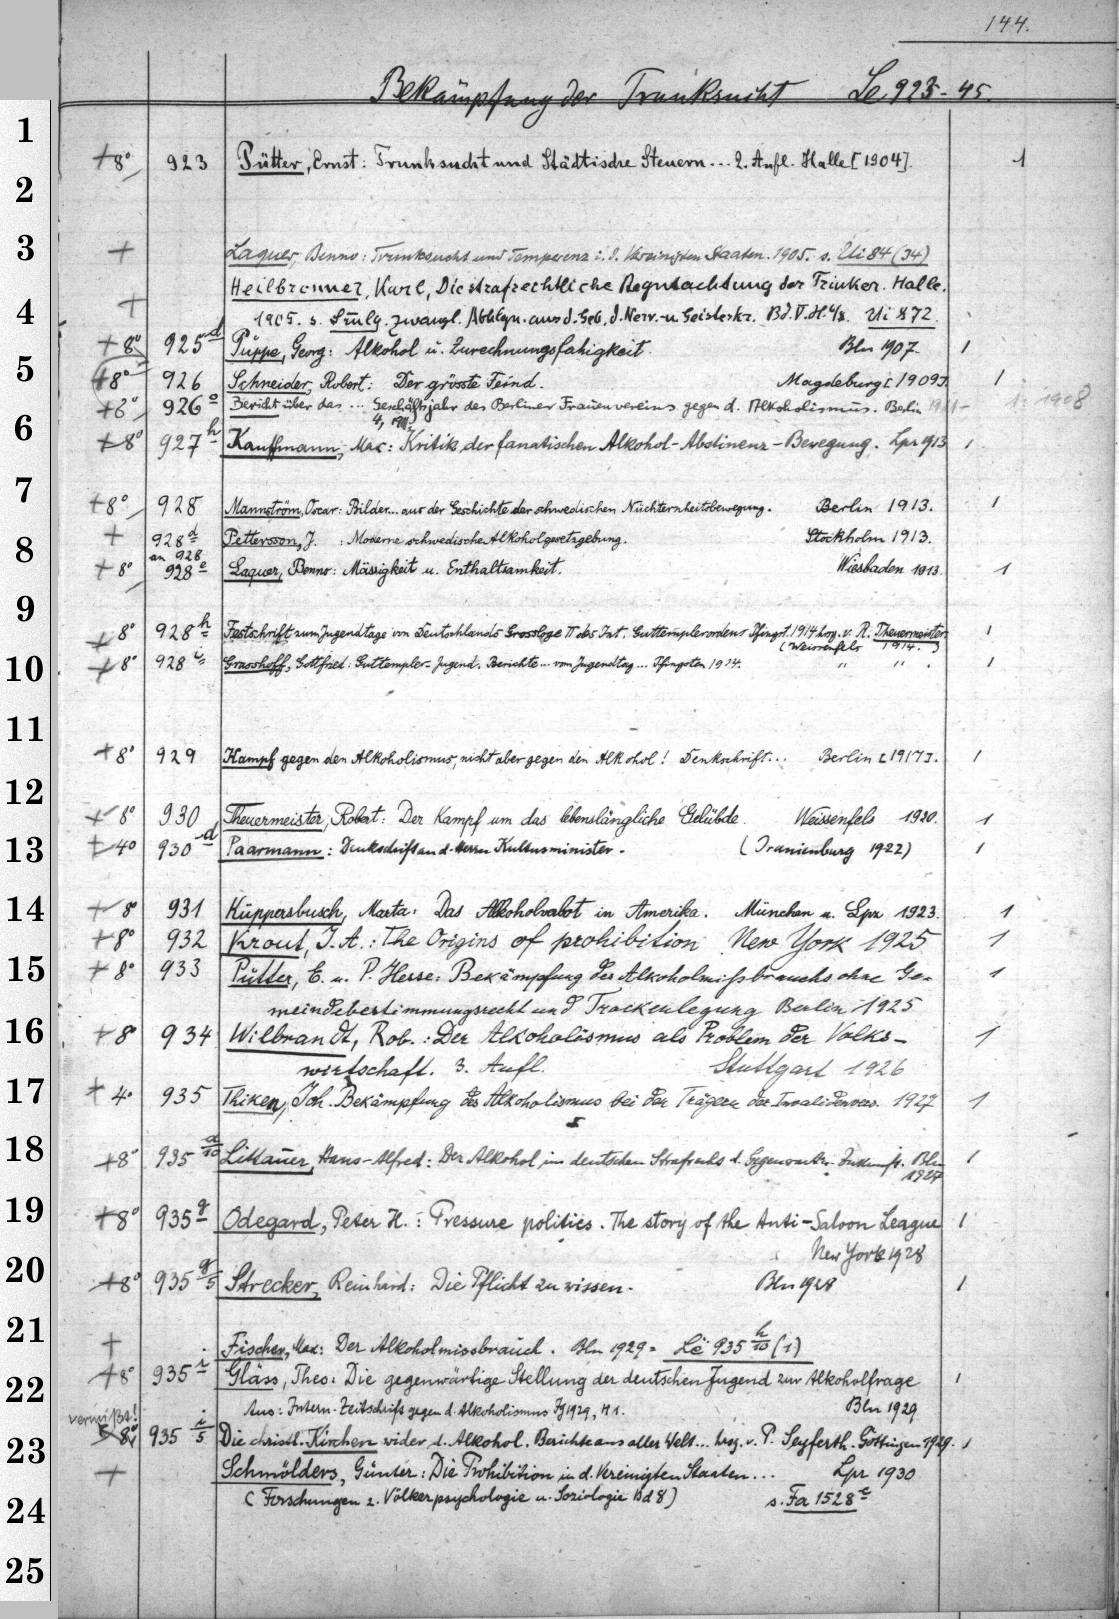 144.
Bekämpfung der Trunksucht Le 923-45.
1
+8° 923 Pütter, Ernst: Trunksucht und Städtische Steuern... 2. Aufl. Halle [1904]. 1
2
3
+ Laquer, Benno: Trunksucht und Temperenz i. d. Vereinigten Staaten. 1905. s. Ui 84 (34)
Heilbronner, Karl, Die strafrechtliche Begutachtung der Trinker. Halle.
4
+ 1905. s. Smlg. zwangl. Abhlgn. aus d. Geb. d. Nerv.- u. Geisteskr. Bd. V. H. 4/8. Ui 872
+8° 925 d Puppe, Georg: Alkohol u. Zurechnungsfähigkeit. Bln 1907. 1
5
+8° 926 Schneider, Robert: Der grösste Feind. Magdeburg [1909]. 1
+8° 926 e Bericht über das ... Geschäftsjahr des Berliner Frauenvereins gegen d. Alkoholismus. Berlin 1908
4,
6
+8° 927 h Kauffmann, Max: Kritik der fanatischen Alkohol-Abstinenz-Bewegung. Lpz 1913 1
7
+8° 928 Mannström, Oscar: Bilder... aus der Geschichte der schwedischen Nüchternheitsbewegung. Berlin 1913. 1
+ 928 d Pettersson, J. : Moderne schwedische Alkoholgesetzgebung. Stockholm 1913.
8
an 928
+8° 928 e Laquer, Benno: Mässigkeit u. Enthaltsamkeit. Wiesbaden 1913. 1
9
+8° 928 h Festschrift zum Jugendtage von Deutschlands Grossloge II des Int. Guttemplerordens Pfingst. 1914 hrsg. v. R. Theuermeister. 1
(Weissenfels 1914.)
10
+8° 928 i Grasshoff, Gottfried: Guttempler-Jugend. Berichte... vom Jugendtag... Pfingsten 1914. " " . 1
11
+8° 929 Kampf gegen den Alkoholismus, nicht aber gegen den Alkohol! Denkschrift... Berlin [1917]. 1
12
+8° 930 Theuermeister, Robert: Der Kampf um das lebenslängliche Gelübde. Weissenfels 1920. 1
13
+4° 930 d Paarmann: Denkschrift an d. Herrn Kultusminister. (Oranienburg 1922) 1
14
+8° 931 Küppersbusch, Marta: Das Alkoholverbot in Amerika. München u. Lpz 1923. 1
+8° 932 Krout, J. A.: The Origins of prohibition New York 1925 1
15
+8° 933 Pütter, E. u. P. Hesse: Bekämpfung des Alkoholmißbrauchs ohne Ge- 1
meindebestimmungsrecht und Trockenlegung Berlin 1925
16
+8° 934 Wilbrandt, Rob.: Der Alkoholismus als Problem der Volks- 1
wirtschaft. 3. Aufl. Stuttgart 1926
17
+4° 935 Thiken, Joh. Bekämpfung des Alkoholismus bei den Trägern der Invalidenvers. 1927 1
18
+8° 935 a/10 Littauer, Hans-Alfred: Der Alkohol im deutschen Strafrecht d. Gegenwart u. Zukunft. Bln 1
1927
19
+8° 935 g Odegard, Peter H.: Pressure politics. The story of the Anti-Saloon League 1
New York 1928
20
+8° 935 g/5 Strecker, Reinhard: Die Pflicht zu wissen. Bln 1928 1
21
+ Fischer, Max: Der Alkoholmissbrauch. Bln 1929 = Le 935 h/10 (1)
+8° 935 i Gläss, Theo: Die gegenwärtige Stellung der deutschen Jugend zur Alkoholfrage 1
22
Aus: Intern. Zeitschrift gegen d. Alkoholismus Jg 1929, H 1. Bln 1929
vermißt!
23
8° 935 i/5 Die christl. Kirchen wider d. Alkohol. Berichte aus aller Welt... hrsg. v. P. Seyferth. Göttingen 1929. 1
+ Schmölders, Günter: Die Prohibition in d. Vereinigten Staaten... Lpz 1930
24
(Forschungen z. Völkerpsychologie u. Soziologie Bd 8) s. Fa 1528 e
25